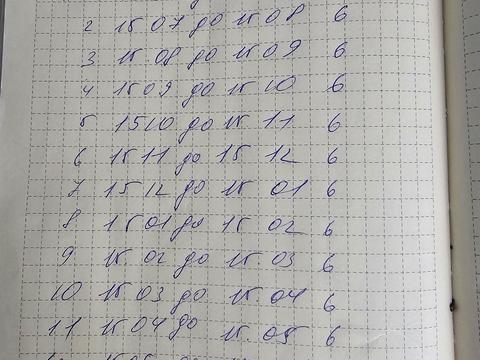 2 15 07 до 15 08 6
3 15 08 до 15 09 6
4 15 09 до 15 10 6
5 15 10 до 15 11 6
6 15 11 до 15 12 6
7 15 12 до 15 01 6
8 15 01 до 15 02 6
9 15 02 до 15 03 6
10 15 03 до 15 04 6
11 15 04 до 15.05 6